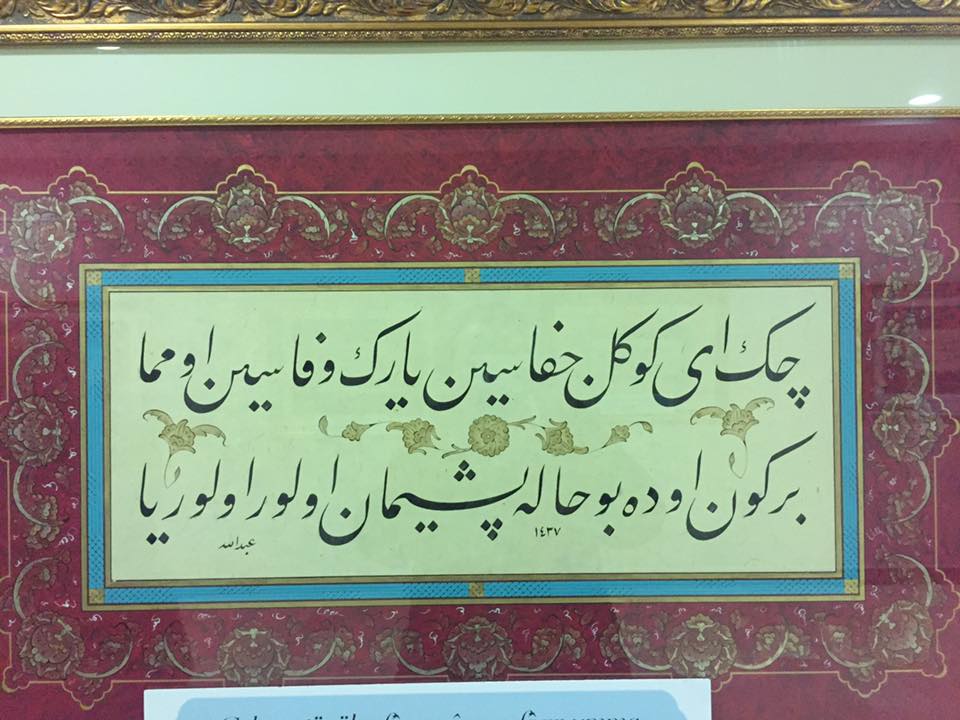 چك ای كوكل جفاسین یارك وفاسین اومما
بركون اوده بو حاله پشیمان اولور اولور یا
١٤٣٧
عبدالله